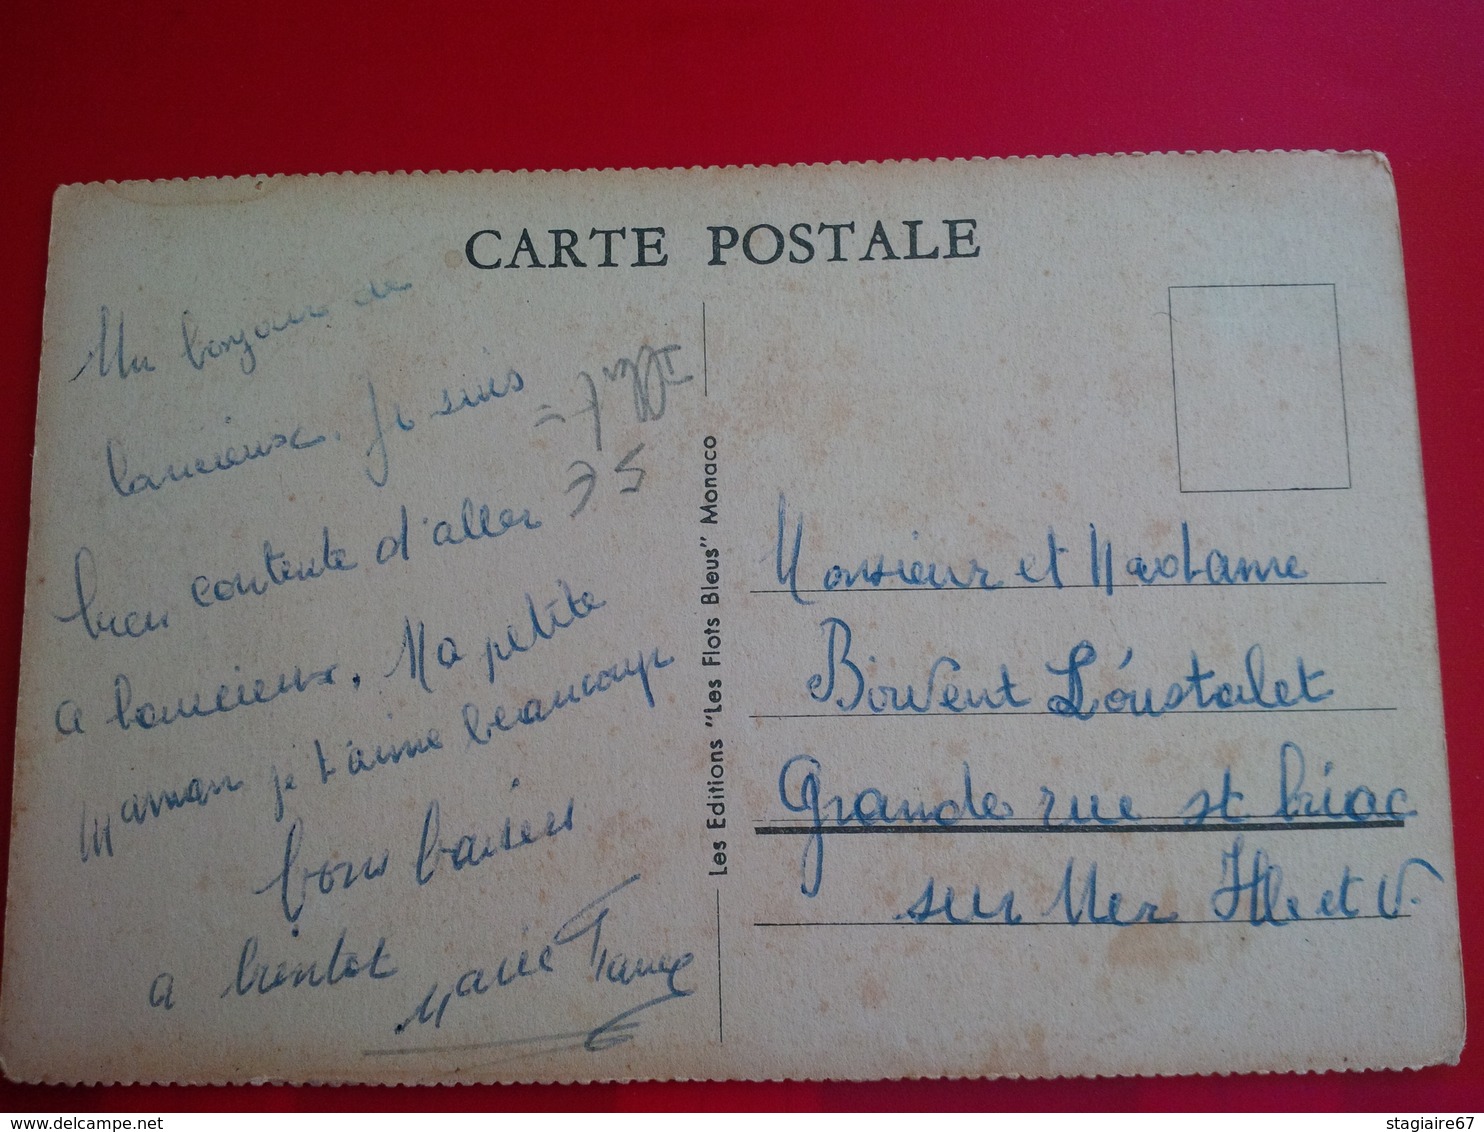 CARTE POSTALE
Un bonjour de
lancieux. Je suis
bien contente d'aller
a lancieux. Ma petite
maman je t'aime beaucoup
bons baisers
a bientot
Marie
35
Les Editions "Les Flots Bleus" Monaco
Monsieur et Madame
Bouvent Loustalet
Grande rue st briac
sur Mer Ille et V.
stagiaire67